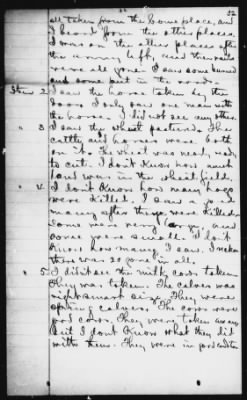 22
all taken from the home place, and
I heard from the other places.
I was on the other places after
the army left, and the rails
were all gone. I saw some burned
and some put in the roads.
Item 2. I saw the horse taken by the
I only saw one man with
the horse. I did not see any other.
" 3 I saw the wheat pastured. The
cattle and horses were both
in it. The wheat was ready
to cut. I don't know how much
land was in the wheat field.
" 4. I don't know how many hogs
were killed. I saw a good
many after they were killed
some was very large and
some were small. I don't
know how many I saw. I reckon
there was 20 gone in all.
" 5 I didn't see the milk cows taken
They was taken. The calves was
right smart size. They were
calves. The cows were
good cows. They were taken away
but I dont know what they did
with them. They were in good condition